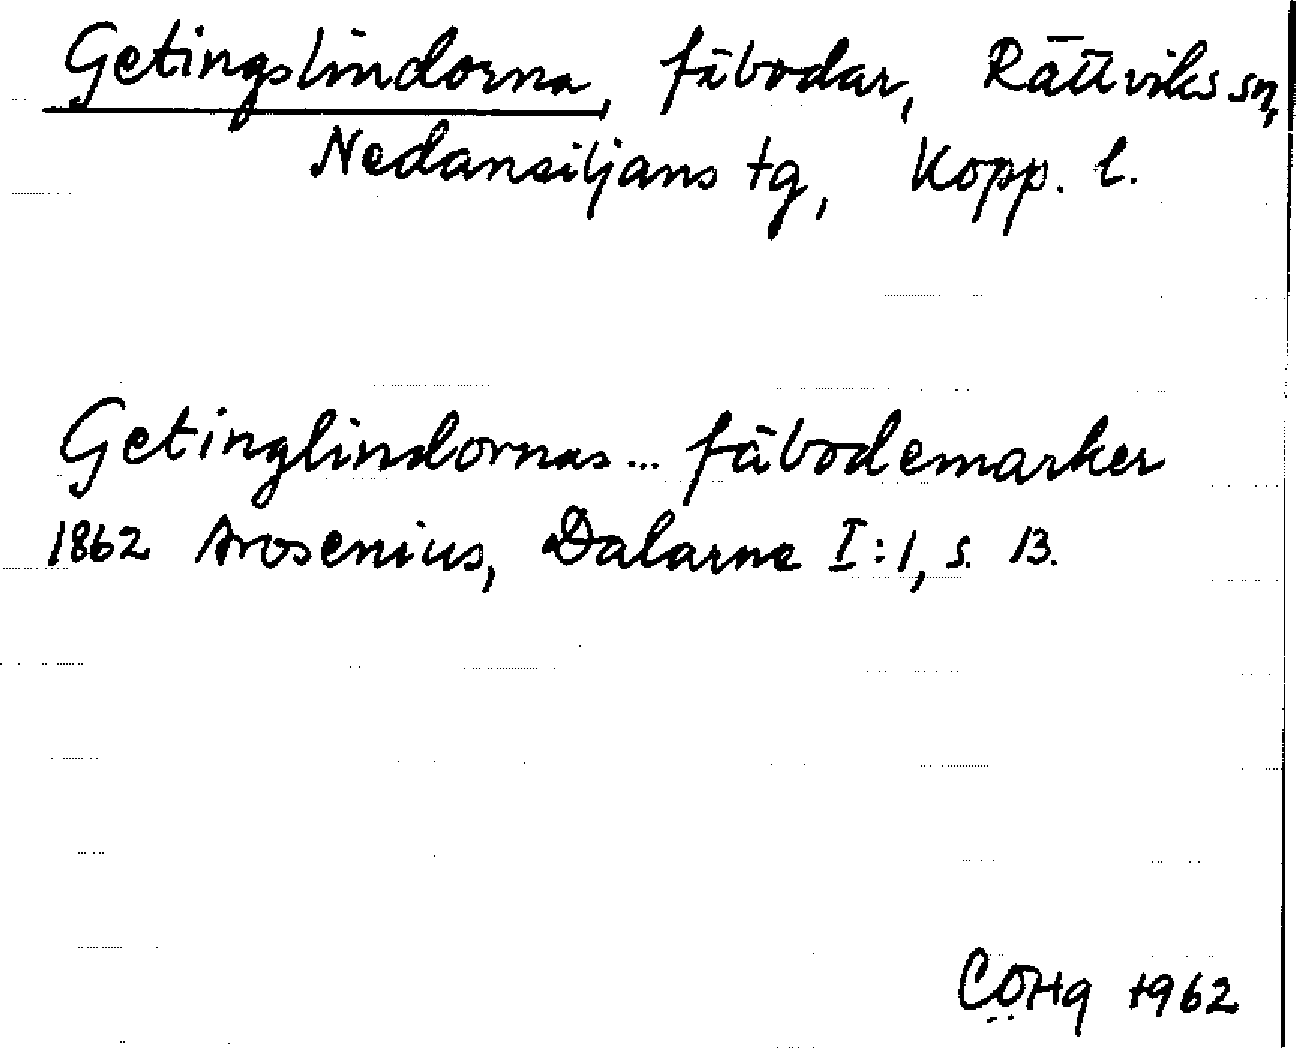 Getingslindorna, fäbodar, Rättviks sn,
Nedansiljans tg, Kopp. l.
Getinglindornas... fäbodemarker
1862 Arosenius, Dalarne I:1, s. 13.
COHg 1962